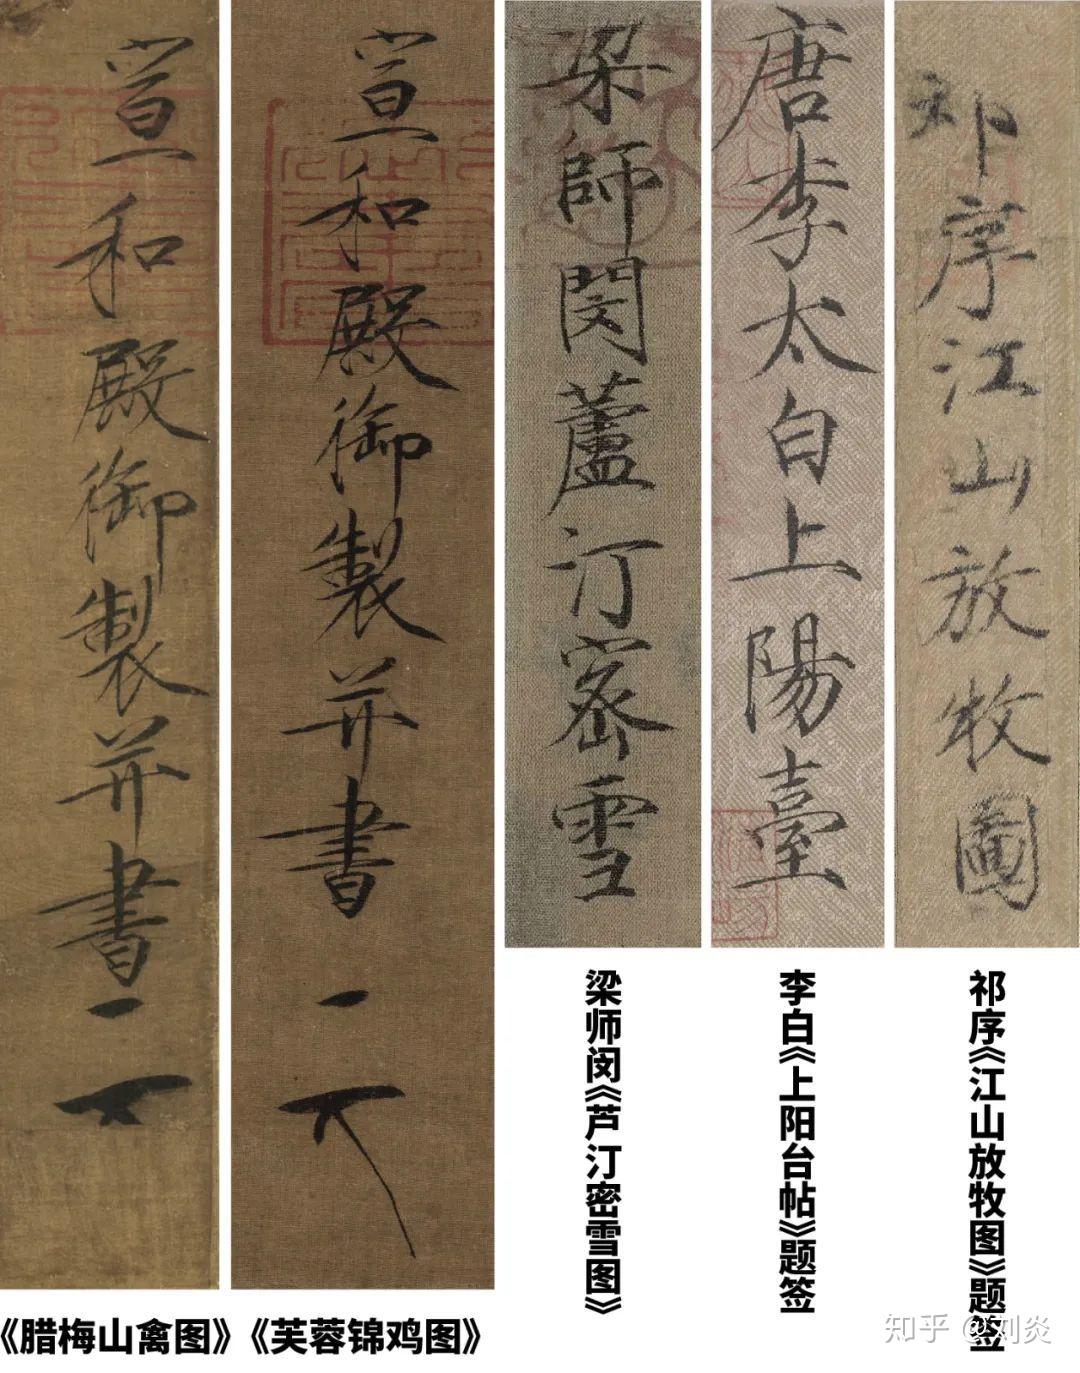 宣和殿御製并書
宣和殿御製并書
梁師閔蘆汀密雪
唐李太白上陽臺
祁序江山放牧圖
《腊梅山禽图》
《芙蓉锦鸡图》
梁师闵《芦汀密雪图》
李白《上阳台帖》题签
祁序《江山放牧图》题签
知乎 @刘炎